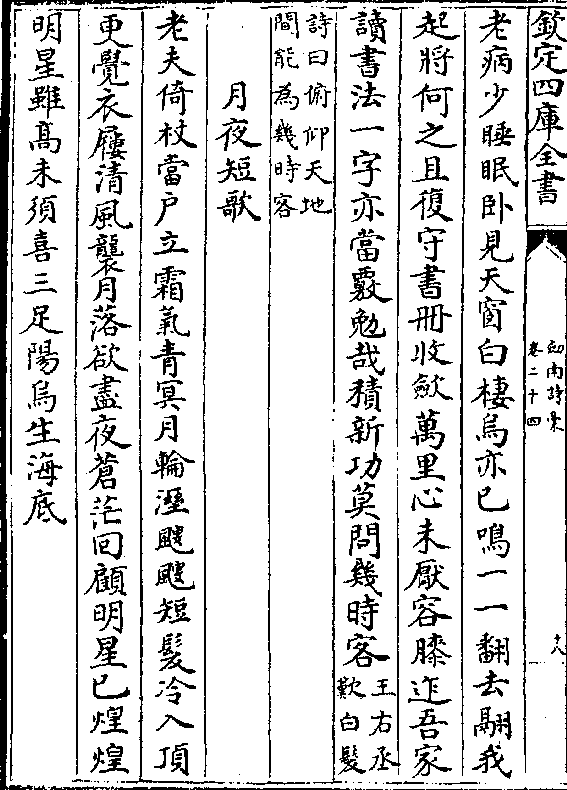 欽定四庫全書
劍南詩稾
卷二十四
十八
老病少睡眠卧見天窗白棲烏亦已鳴一一翻去翮我
起將何之且復守書冊收斂萬里心未厭容膝迮吾家
讀書法一字亦當覈勉哉積新功莫問幾時客王右丞歎白髮
詩曰俯仰天地間能為幾時客
月夜短歌
老夫倚杖當户立霜氣青冥月輪溼颼颼短髮冷入頂
更覺衣屨清風襲月落欲盡夜蒼茫回顧明星已煌煌
明星雖髙未須喜三足陽烏生海底